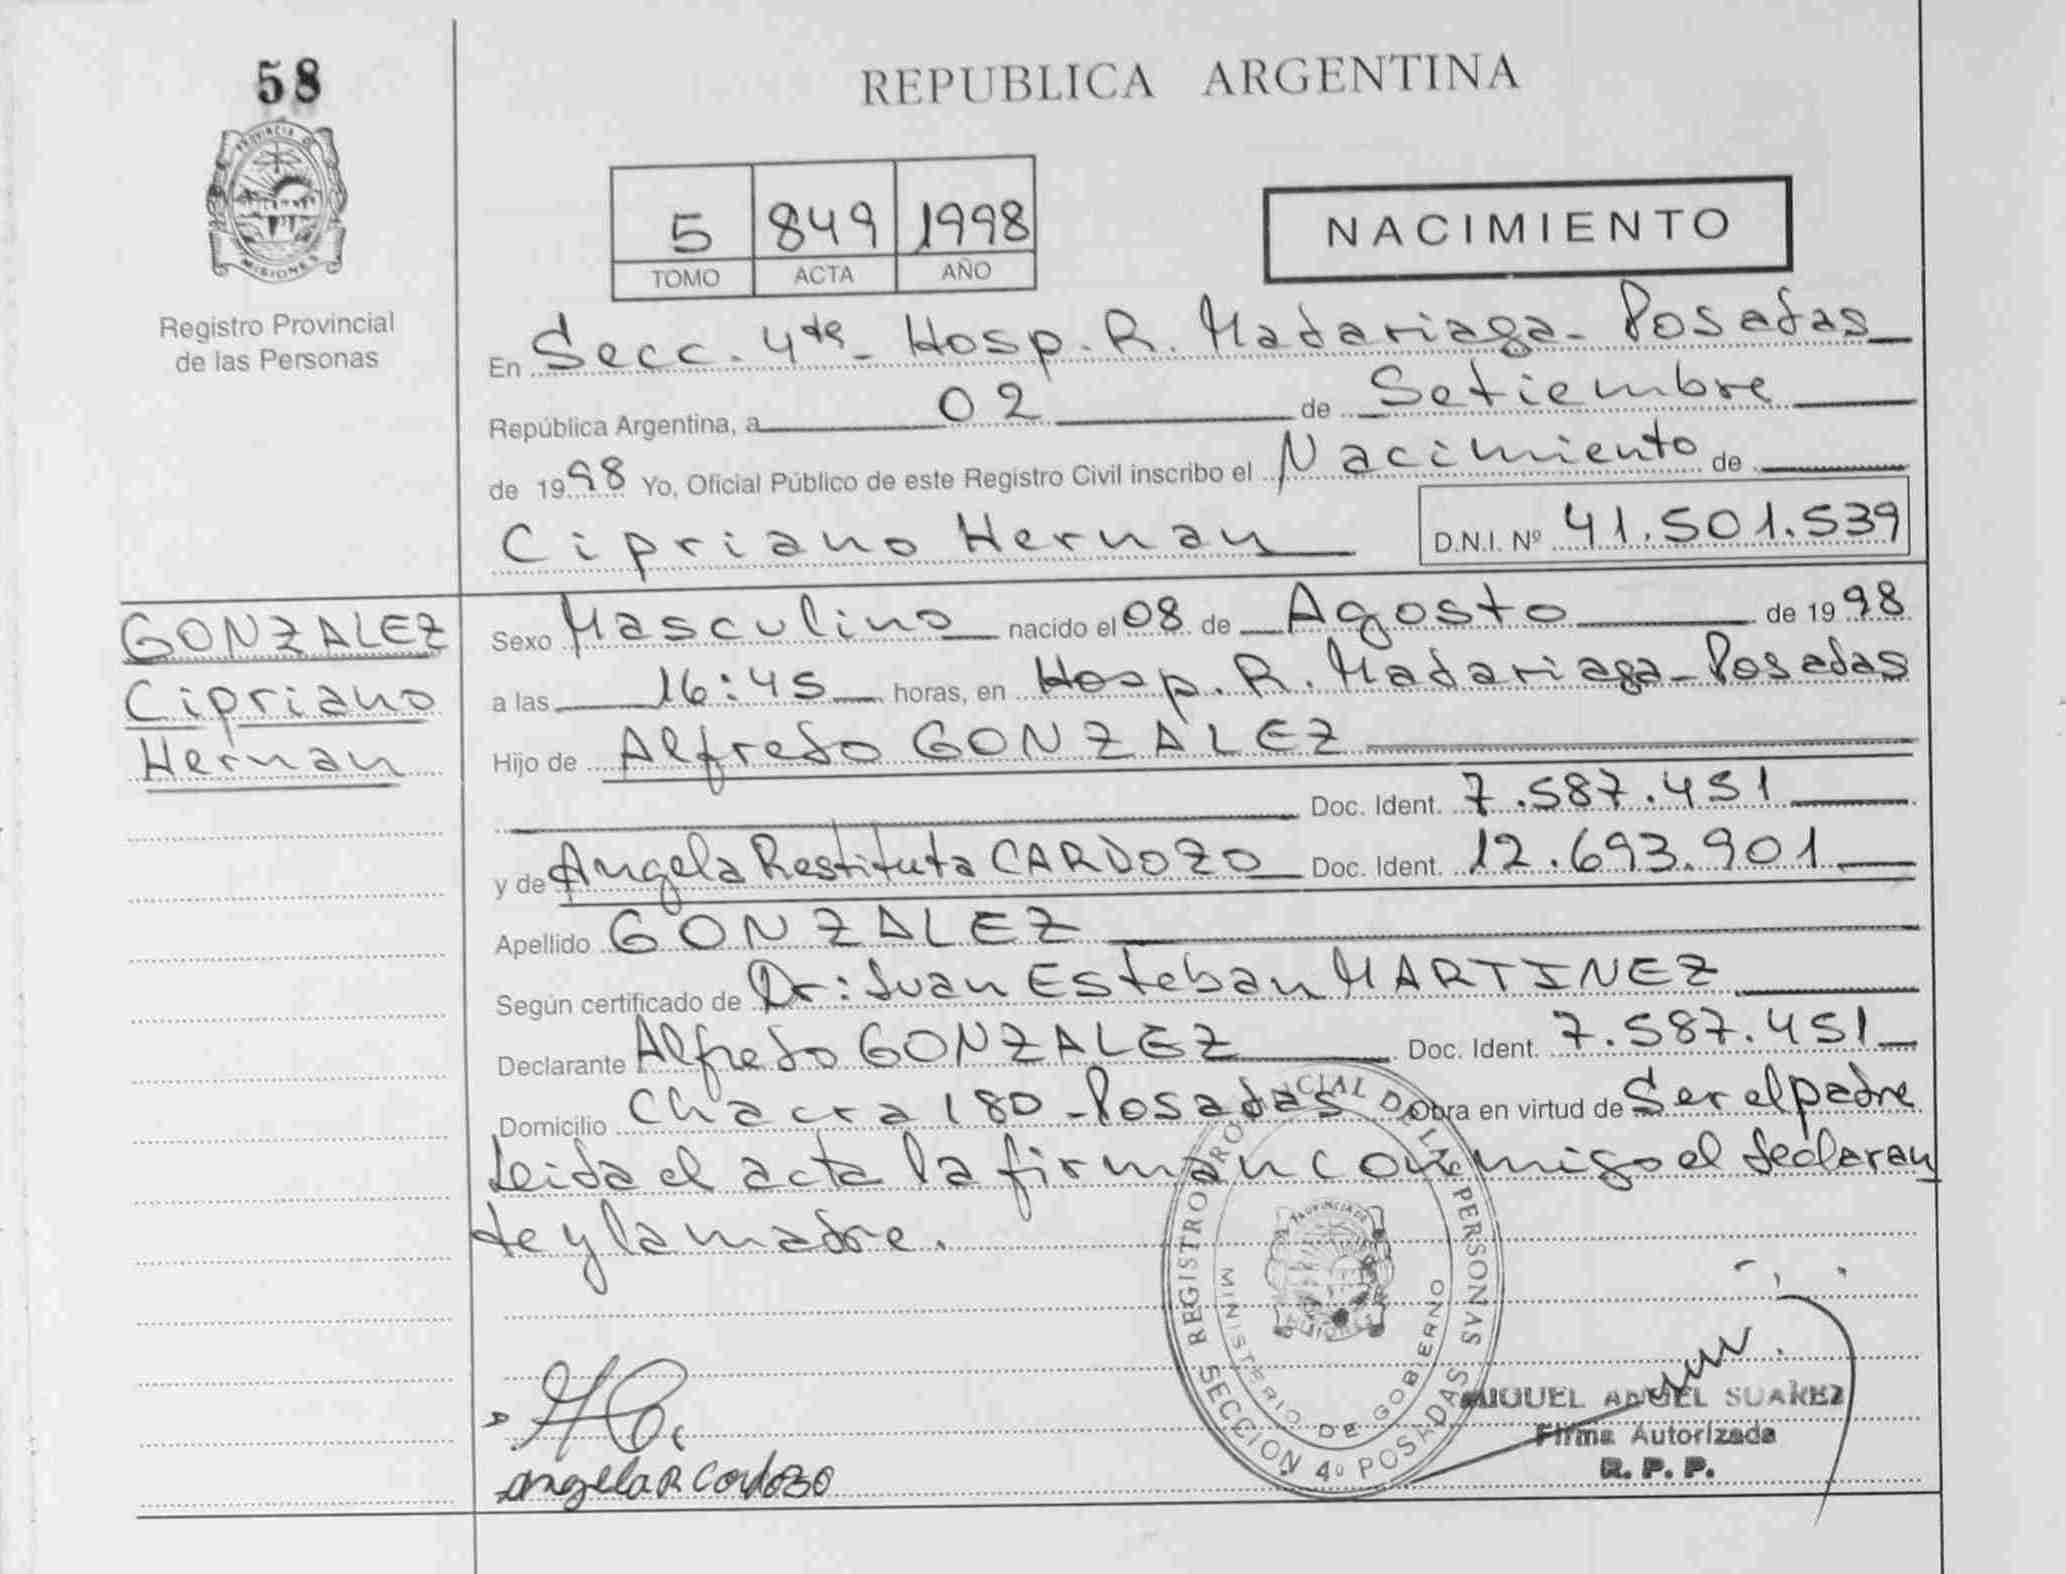 58
PROVINCIA DE
MISIONES
Registro Provincial
de las Personas
REPUBLICA ARGENTINA
5 849 1998
TOMO ACTA AÑO
NACIMIENTO
En Secc. 4ta - Hosp. R. Madariaga - Posadas
República Argentina, a 02 de Setiembre
de 1998 Yo, Oficial Público de este Registro Civil inscribo el Nacimiento de
Cipriano Hernan D.N.I. Nº 41.501.539
GONZALEZ
Cipriano
Hernan
Sexo Masculino nacido el 08 de Agosto de 1998
a las 16:45 horas, en Hosp. R. Madariaga - Posadas
Hijo de Alfredo GONZALEZ
Doc. Ident. 7.587.451
y de Angela Restituta CARDOZO Doc. Ident. 12.693.901
Apellido GONZALEZ
Según certificado de Dr: Juan Esteban MARTINEZ
Declarante Alfredo GONZALEZ Doc. Ident. 7.587.451
Domicilio Chacra 180 - Posadas Obra en virtud de Ser el padre
Leida el acta la firman conmigo el declaran
te y la madre.
REGISTRO PROVINCIAL DE LAS PERSONAS
MINISTERIO DE GOBIERNO
PROVINCIA DE
MISIONES
SECCION 4º POSADAS
angela R Cardozo
MIGUEL ANGEL SUAREZ
Firma Autorizada
R. P. P.